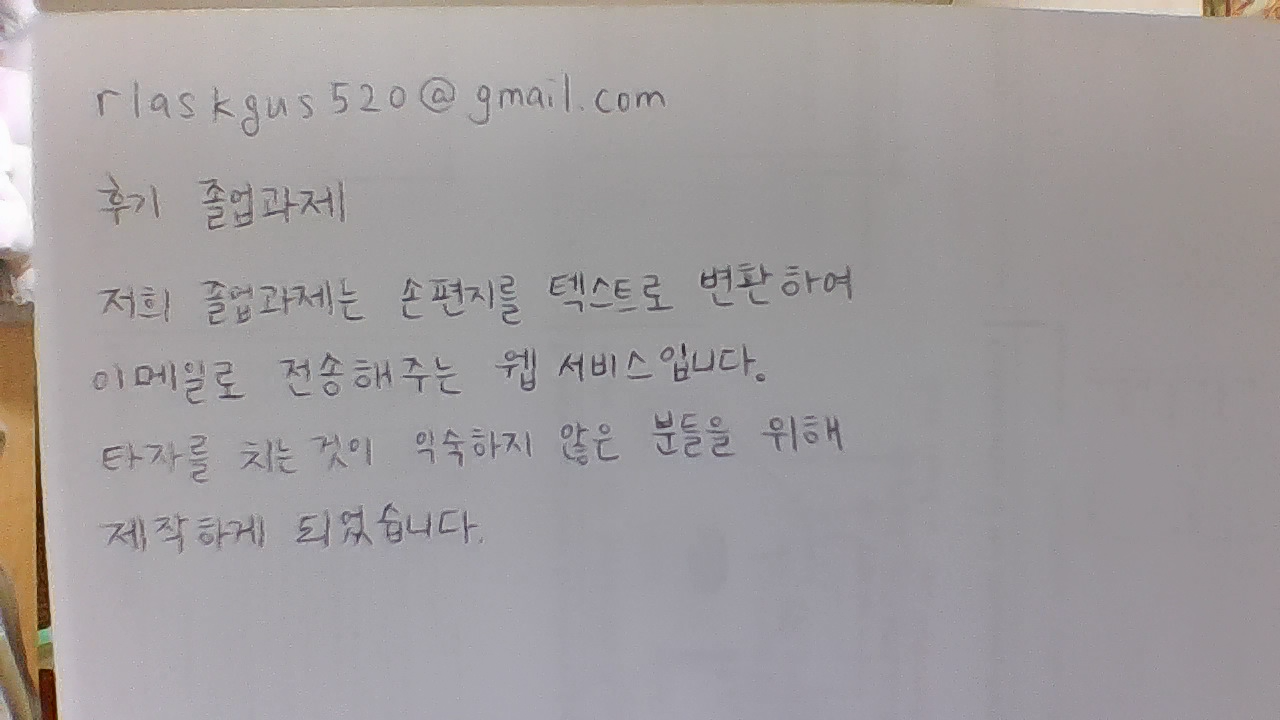 rlaskgus520@gmail.com
후기 졸업과제
저희 졸업과제는 손편지를 텍스트로 변환하여
이메일로 전송해주는 웹 서비스입니다.
타자를 치는 것이 익숙하지 않은 분들을 위해
제작하게 되었습니다.